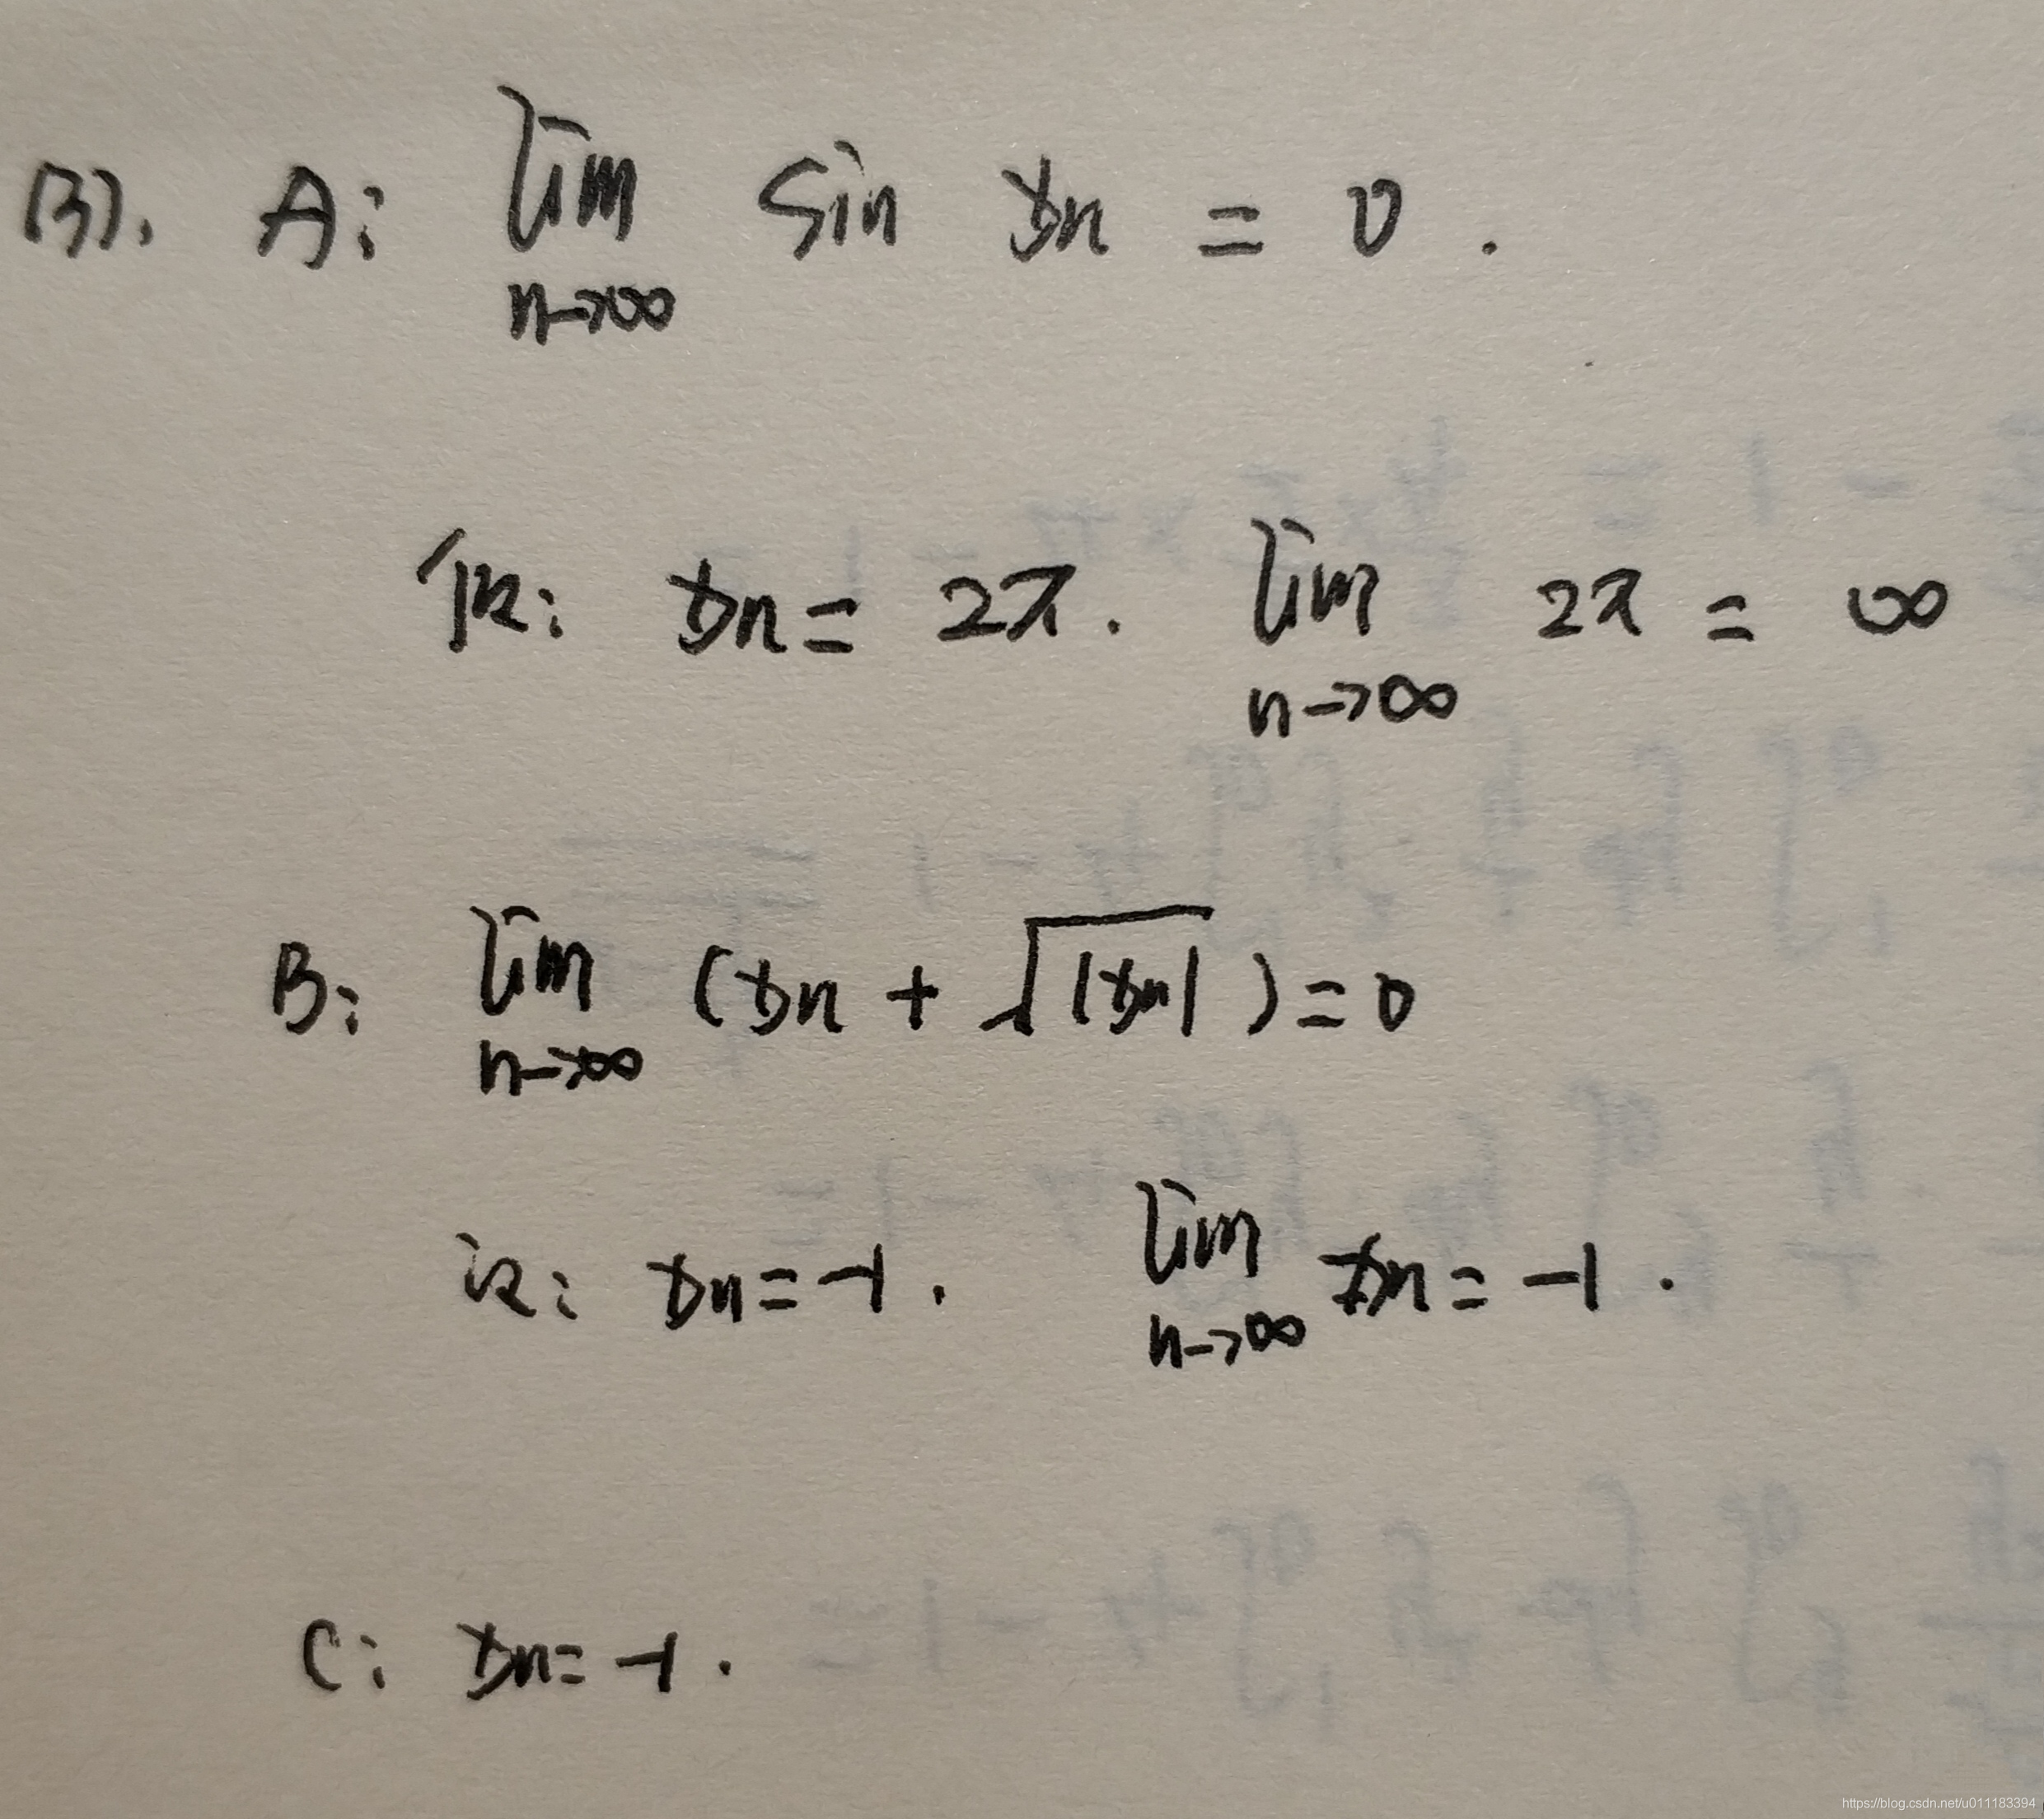 (3). A: lim n→∞ sin xn = 0.
取: xn = 2π. lim n→∞ 2π = ∞
B: lim n→∞ (xn + √|xn|) = 0
xn = -1. lim n→∞ xn = -1.
C: xn = -1.
https://blog.csdn.net/u011183394